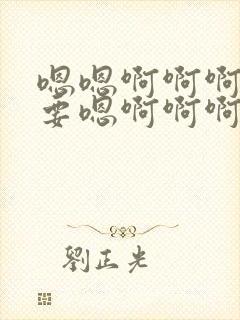 嗯嗯啊啊啊
要嗯啊啊啊
劉正光